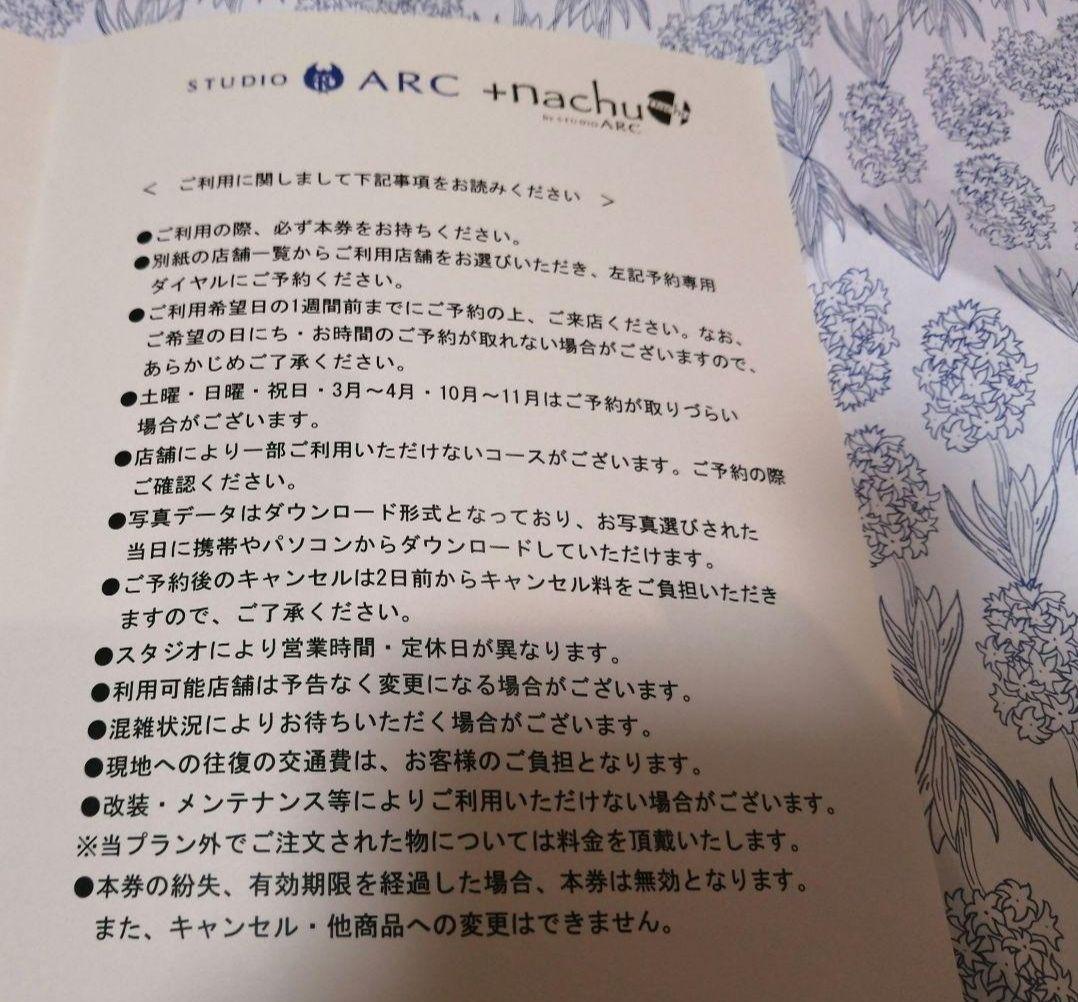 STUDIO ARC +nachu
by STUDIO ARC
< ご利用に関しまして下記事項をお読みください >
●ご利用の際、必ず本券をお持ちください。
●別紙の店舗一覧からご利用店舗をお選びいただき、左記予約専用
ダイヤルにご予約ください。
●ご利用希望日の1週間前までにご予約の上、ご来店ください。なお、
ご希望の日にち・お時間のご予約が取れない場合がございますので、
あらかじめご了承ください。
●土曜・日曜・祝日・3月～4月・10月～11月はご予約が取りづらい
場合がございます。
●店舗により一部ご利用いただけないコースがございます。ご予約の際
ご確認ください。
●写真データはダウンロード形式となっており、お写真選びされた
当日に携帯やパソコンからダウンロードしていただけます。
●ご予約後のキャンセルは2日前からキャンセル料をご負担いただき
ますので、ご了承ください。
●スタジオにより営業時間・定休日が異なります。
●利用可能店舗は予告なく変更になる場合がございます。
●混雑状況によりお待ちいただく場合がございます。
●現地への往復の交通費は、お客様のご負担となります。
●改装・メンテナンス等によりご利用いただけない場合がございます。
※当プラン外でご注文された物については料金を頂戴いたします。
●本券の紛失、有効期限を経過した場合、本券は無効となります。
また、キャンセル・他商品への変更はできません。